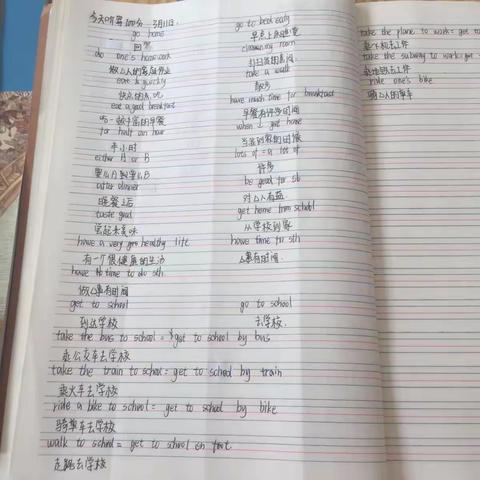 今天听写100分 3月11日.
go home
回家
do one's homework
做△人的家庭作业
eat quickly
快点的吃
eat a good breakfast
吃一顿丰富的早餐
for half an hour
半小时
either A or B
要么A要么B
after dinner
晚餐之后
taste good
尝起来美味
have a very healthy life
有一个很健康的生活
have time to do sth
做△事有时间
get to school
到达学校
take the bus to school = get to school by bus
乘公交车去学校
take the train to school = get to school by train
乘火车去学校
ride a bike to school = get to school by bike
骑单车去学校
walk to school = get to school on foot
走路去学校
go to bed early
早点上床睡觉
room
take a walk
散步
have much time for breakfast
早餐有许多时间
when I get home
当我到家的时候
lots of = a lot of
许多
be good for sb
对△人有益
get home from school
从学校到家
have time for sth
△事有时间.
go to school
去学校.
take the plane to work = get to
take the subway to work = get to
乘地铁去工作
ride one's bike
骑△人的单车